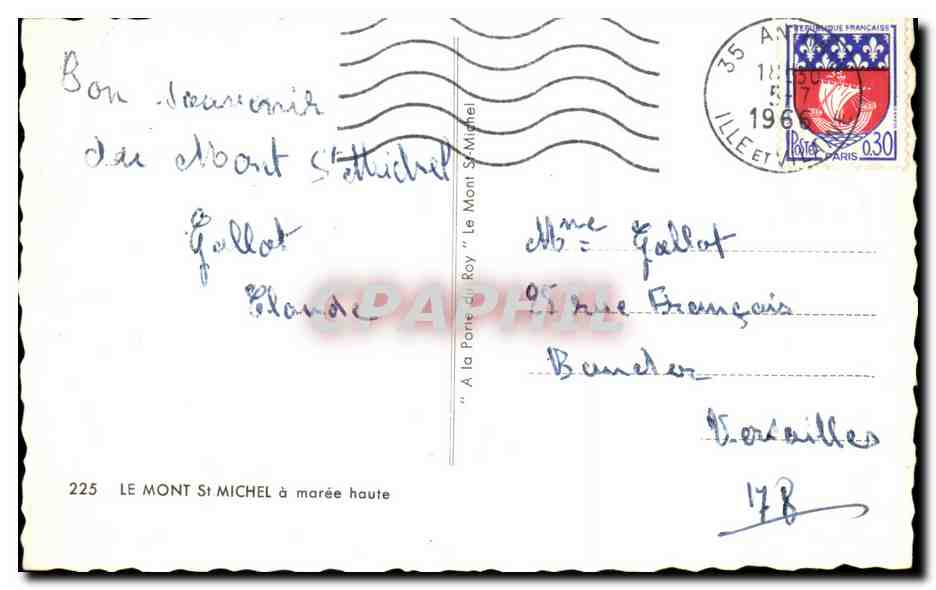 Bon souvenir
du Mont St Michel
Gallot
Claude
225 LE MONT St MICHEL à marée haute
" A la Porte du Roy " Le Mont St-Michel
35
18 30
5-7
1966
ILLE ET
REPUBLIQUE FRANÇAISE
POSTES
PARIS
0,30
Mme Gallot
25 rue François
Versailles
78
CPAPHIL